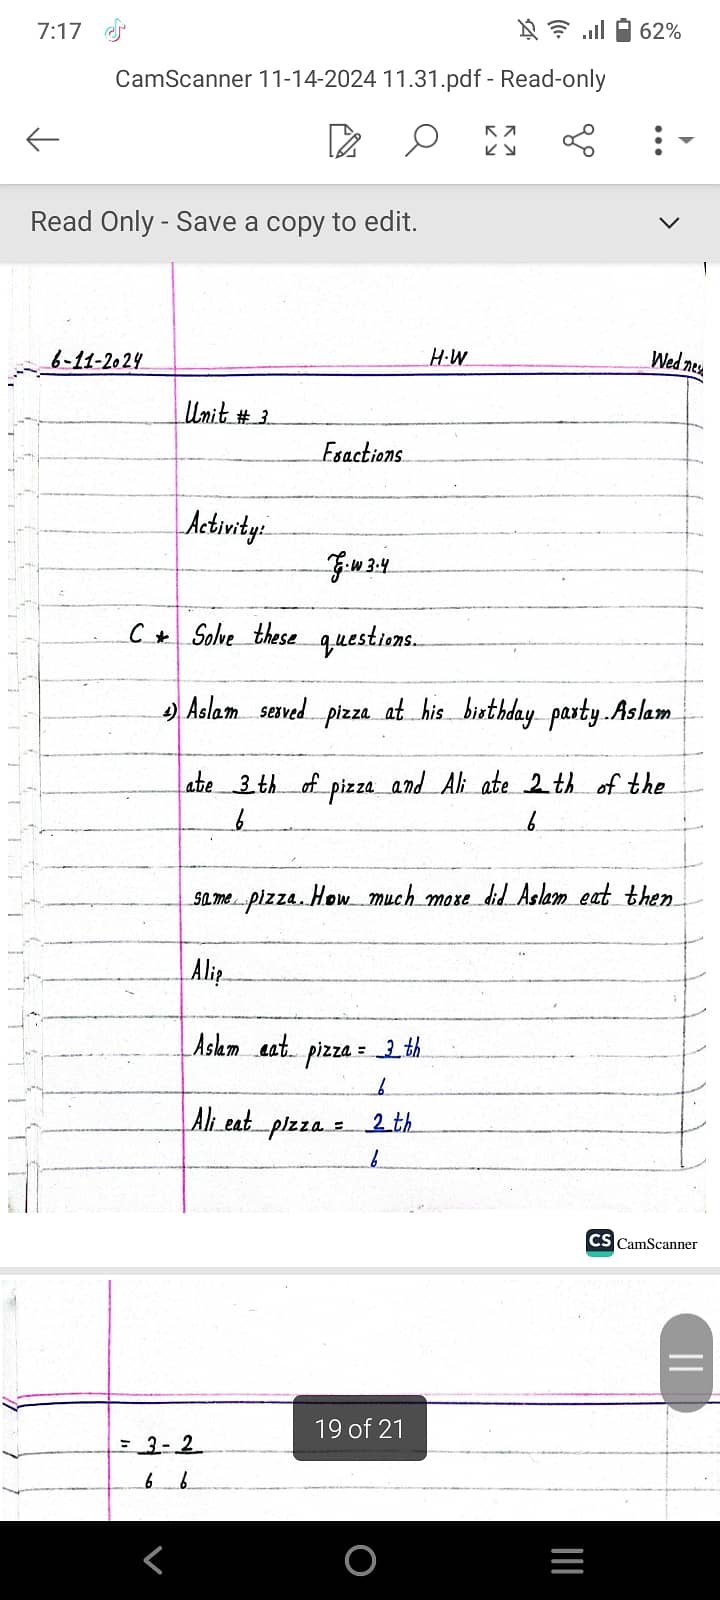 7:17
62%
CamScanner 11-14-2024 11.31.pdf - Read-only
Read Only - Save a copy to edit.
6-11-2024 H.W Wednes
Unit # 3
Fractions
Activity:
F.W 3.4
C * Solve these questions.
1) Aslam served pizza at his birthday party. Aslam
ate 3 th of pizza and Ali ate 2 th of the
6 6
same pizza. How much more did Aslam eat then
Ali?
Aslam eat pizza = 3 th
6
Ali eat pizza = 2 th
6
CS CamScanner
19 of 21
= 3 - 2
6 6